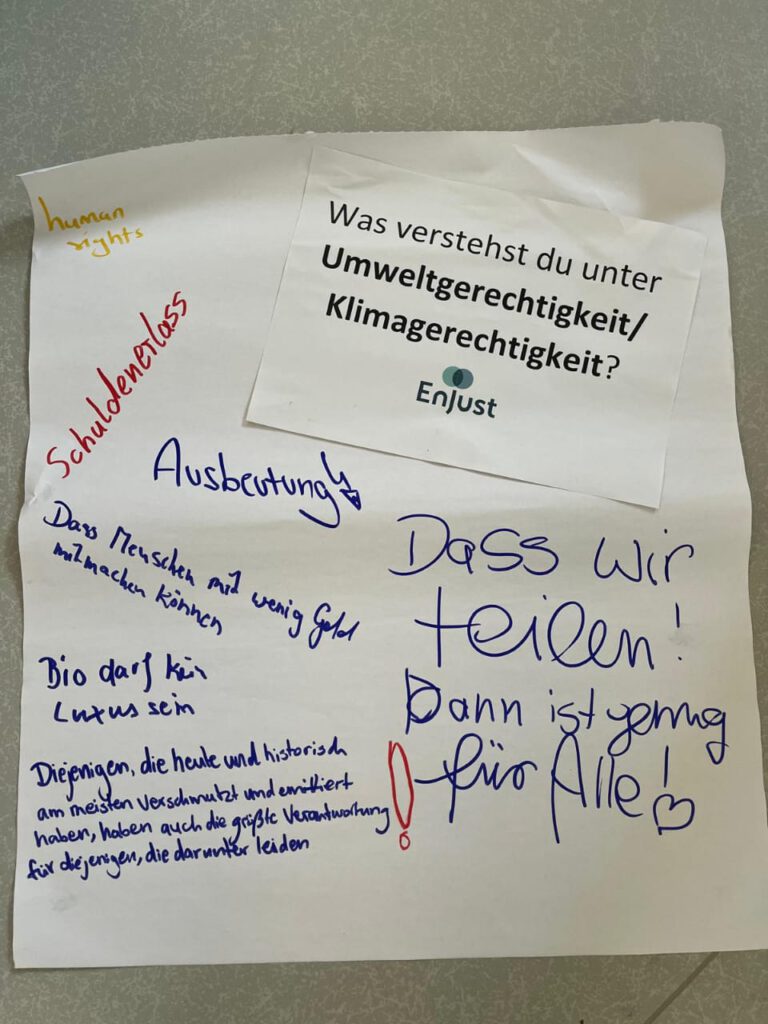 human
rights
Was verstehst du unter
Umweltgerechtigkeit/
Klimagerechtigkeit?
EnJust
Schuldenerlass
Ausbeutung
Dass Menschen mit wenig Geld
mitmachen können
Bio darf kein
Luxus sein
Diejenigen, die heute und historisch
am meisten verschmutzt und emittiert
haben, haben auch die größte Verantwortung
für diejenigen, die darunter leiden
!
Dass wir
teilen!
Dann ist genug
für Alle!